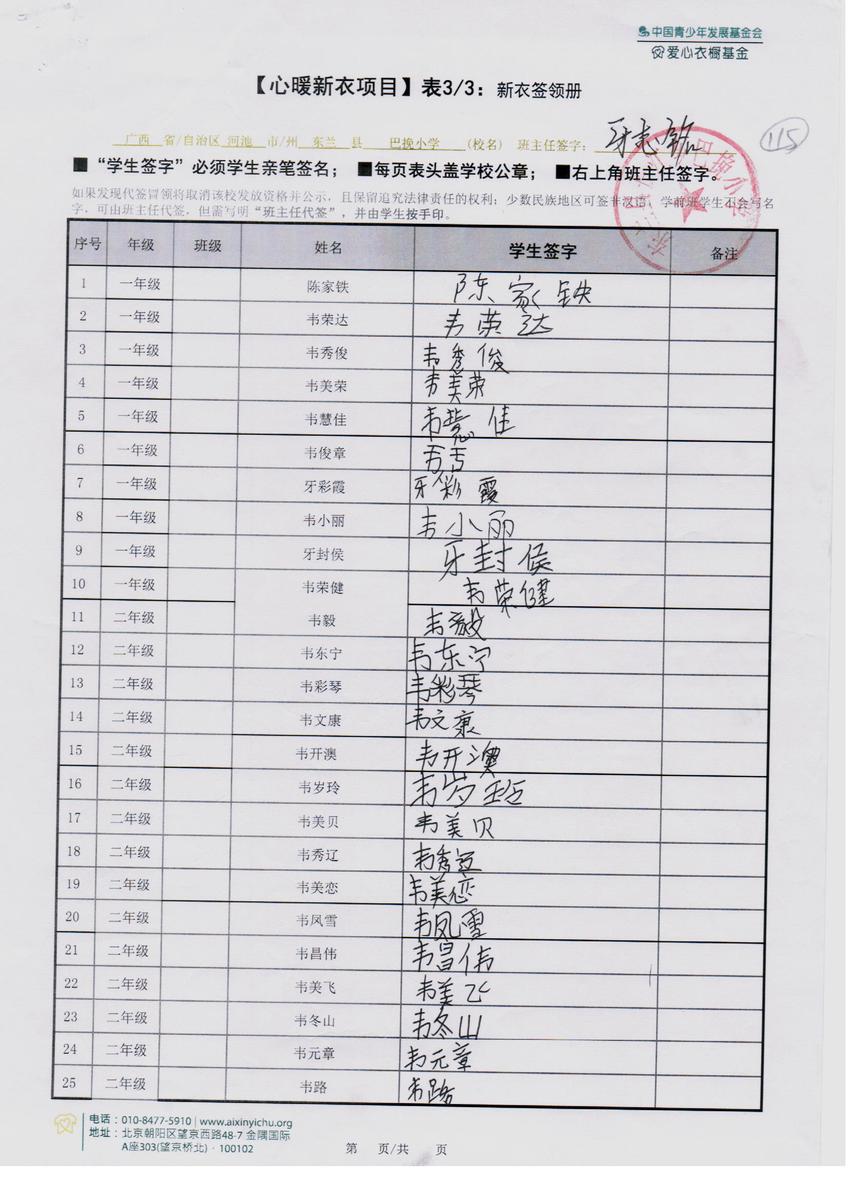 中国青少年发展基金会
爱心衣橱基金
【心暖新衣项目】表3/3：新衣签领册
115
广西 省/自治区 河池 市/州 东兰 县 巴挽小学 （校名） 班主任签字：
■“学生签字”必须学生亲笔签名； ■每页表头盖学校公章； ■右上角班主任签字。
如果发现代签冒领将取消该校发放资格并公示，且保留追究法律责任的权利；少数民族地区可签非汉语，学前班学生不会写名
字，可由班主任代签，但需写明“班主任代签”，并由学生按手印。
序号 年级 班级 姓名 学生签字 备注
1 一年级 陈家铁 陈家铁
2 一年级 韦荣达 韦荣达
3 一年级 韦秀俊 韦秀俊
4 一年级 韦美荣 韦美荣
5 一年级 韦慧佳 韦慧佳
6 一年级 韦俊章
7 一年级 牙彩霞 牙彩霞
8 一年级 韦小丽 韦小丽
9 一年级 牙封侯 牙封侯
10 一年级 韦荣健 韦荣健
11 二年级 韦毅 韦毅
12 二年级 韦东宁 韦东宁
13 二年级 韦彩琴 韦彩琴
14 二年级 韦文康 韦文康
15 二年级 韦开澳 韦开澳
16 二年级 韦岁玲 韦岁玲
17 二年级 韦美贝 韦美贝
18 二年级 韦秀辽 韦秀辽
19 二年级 韦美恋 韦美恋
20 二年级 韦凤雪 韦凤雪
21 二年级 韦昌伟 韦昌伟
22 二年级 韦美飞 韦美飞
23 二年级 韦冬山 韦冬山
24 二年级 韦元章 韦元章
25 二年级 韦路 韦路
电话：010-8477-5910 | www.aixinyichu.org
地址：北京朝阳区望京西路48-7 金隅国际
A座303(望京桥北)·100102
第 页/共 页